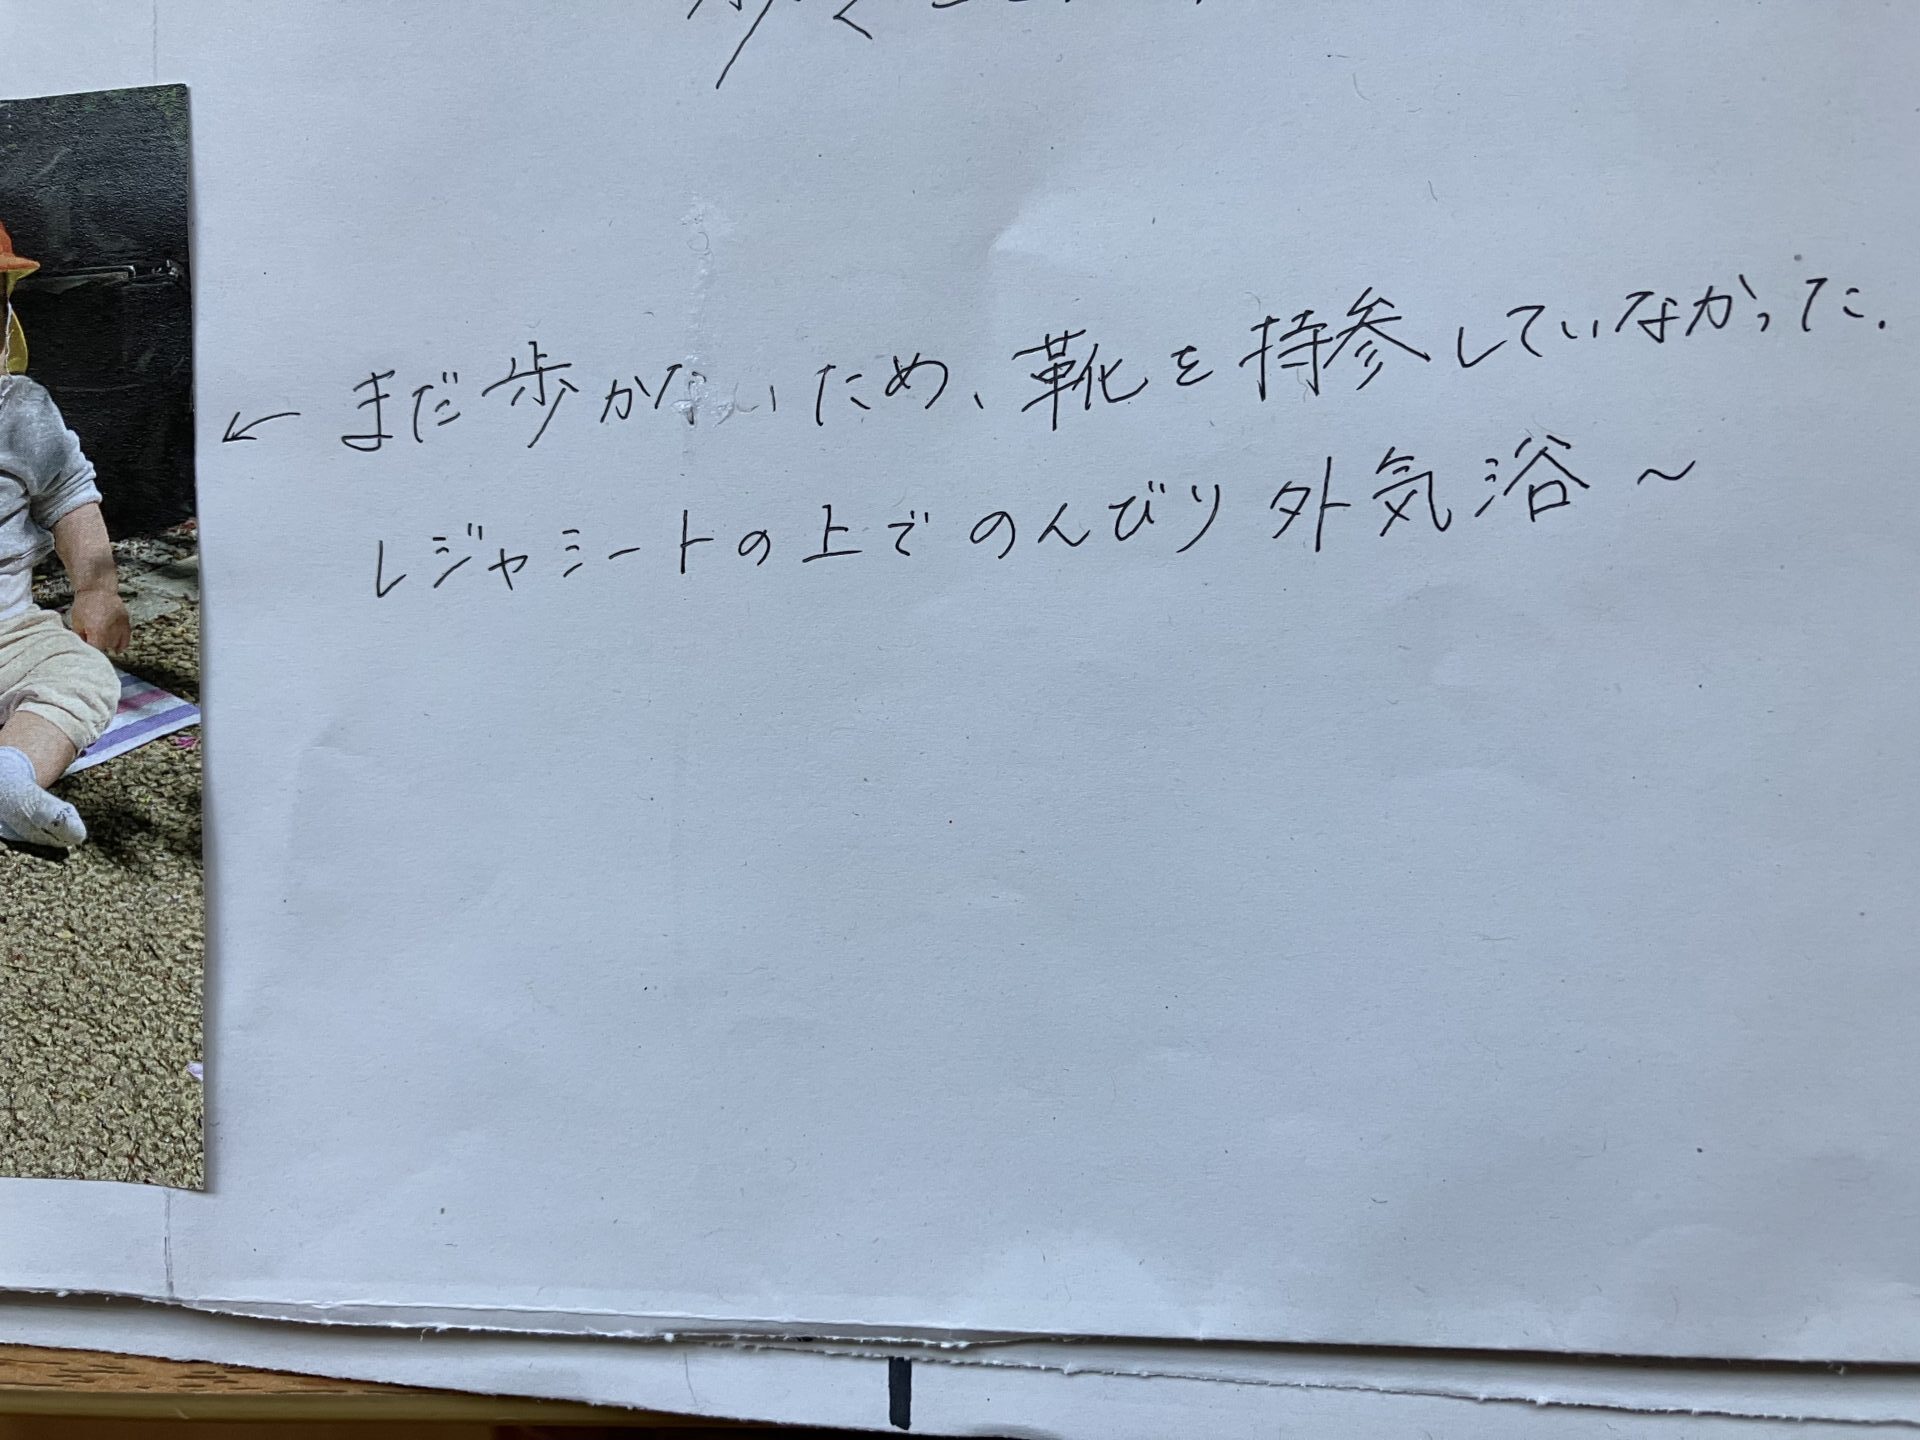 ← まだ歩かないため、靴を持参していなかった.
レジャシートの上でのんびり外気浴〜